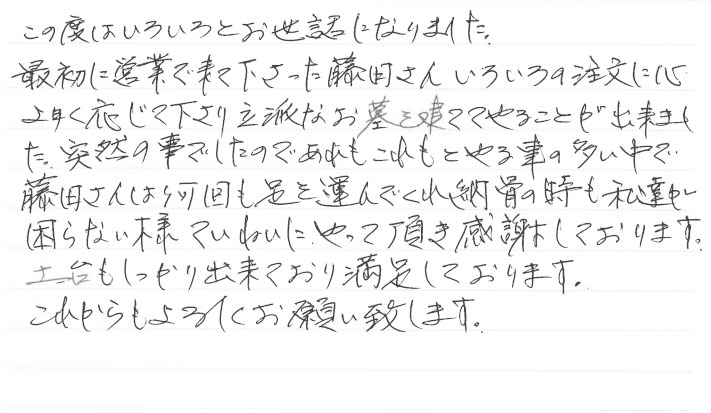 この度はいろいろとお世話になりました。
最初に営業で来て下さった藤田さん いろいろの注文に心
よく応じて下さり立派なお墓を建ててやることが出来まし
た。突然の事でしたのであれもこれもとやる事の多い中で
藤田さんは何回も足を運んでくれ納骨の時も私達が
困らない様ていねいに、やって頂き感謝しております。
土台もしっかり出来ており満足しております。
これからもよろしくお願い致します。